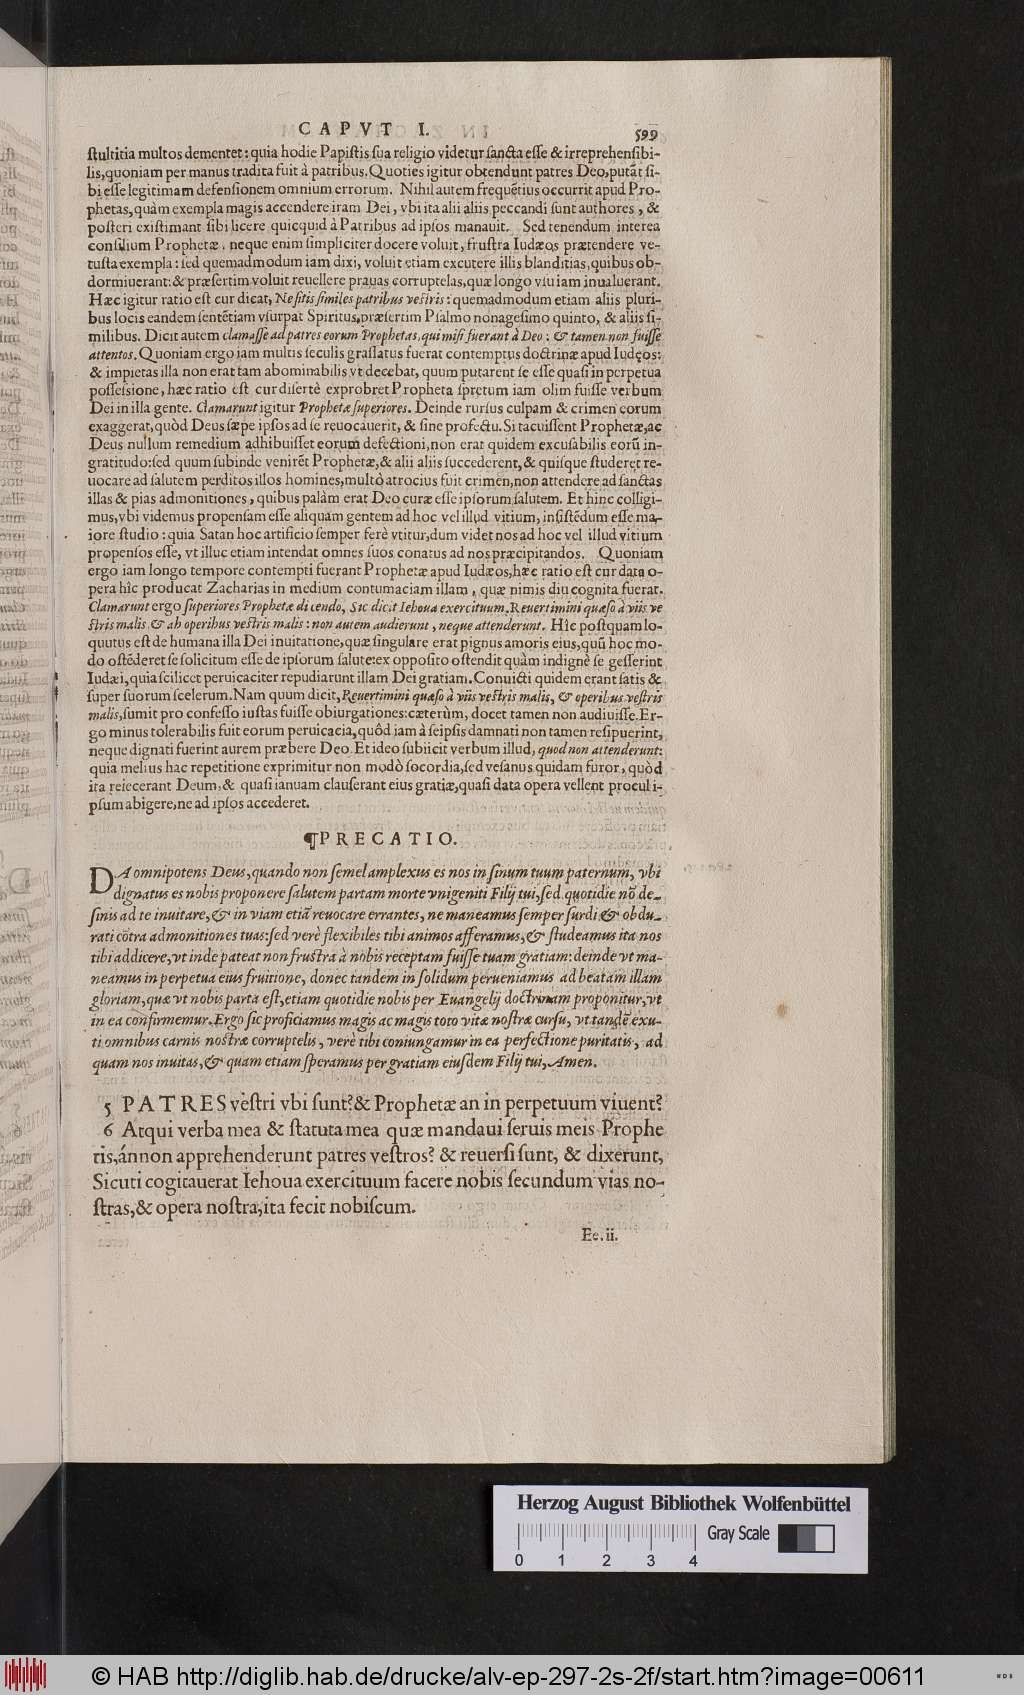 CAPVT I. 599
ſtultitia multos dementet: quia hodie Papiſtis ſua religio videtur ſancta eſſe & irreprehenſibi-
lis, quoniam per manus tradita fuit à patribus. Quoties igitur obtendunt patres Deo, putãt ſi-
bi eſſe legitimam defenſionem omnium errorum. Nihil autem frequẽtius occurrit apud Pro-
phetas, quàm exempla magis accendere iram Dei, vbi ita alii aliis peccandi ſunt authores, &
poſteri exiſtimant ſibi licere quicquid à Patribus ad ipſos manauit. Sed tenendum interea
conſilium Prophetæ, neque enim ſimpliciter docere voluit, fruſtra Iudæos prætendere ve-
tuſta exempla: ſed quemadmodum iam dixi, voluit etiam excutere illis blanditias, quibus ob-
dormiuerant: & præſertim voluit reuellere prauas corruptelas, quæ longo vſu iam inualuerant.
Hæc igitur ratio eſt cur dicat, Ne ſitis ſimiles patribus veſtris: quemadmodum etiam aliis pluri-
bus locis eandem ſentẽtiam vſurpat Spiritus, præſertim Pſalmo nonageſimo quinto, & aliis ſi-
milibus. Dicit autem clamaſſe ad patres eorum Prophetas, qui miſi fuerant à Deo: & tamen non fuiſſe
attentos. Quoniam ergo iam multis ſeculis graſſatus fuerat contemptus doctrinæ apud Iudęos:
& impietas illa non erat tam abominabilis vt decebat, quum putarent ſe eſſe quaſi in perpetua
poſſeſsione, hæc ratio eſt cur diſertè exprobret Propheta ſpretum iam olim fuiſſe verbum
Dei in illa gente. Clamarunt igitur Prophetæ ſuperiores. Deinde rurſus culpam & crimen eorum
exaggerat, quòd Deus ſæpe ipſos ad ſe reuocauerit, & ſine profectu. Si tacuiſſent Prophetæ, ac
Deus nullum remedium adhibuiſſet eorum defectioni, non erat quidem excuſabilis eorũ in-
gratitudo: ſed quum ſubinde venirẽt Prophetæ, & alii aliis ſuccederent, & quiſque ſtuderet re-
uocare ad ſalutem perditos illos homines, multò atrocius fuit crimen, non attendere ad ſanctas
illas & pias admonitiones, quibus palàm erat Deo curæ eſſe ipſorum ſalutem. Et hinc colligi-
mus, vbi videmus propenſam eſſe aliquam gentem ad hoc vel illud vitium, inſiſtẽdum eſſe ma-
iore ſtudio: quia Satan hoc artificio ſemper ferè vtitur, dum videt nos ad hoc vel illud vitium
propenſos eſſe, vt illuc etiam intendat omnes ſuos conatus ad nos præcipitandos. Quoniam
ergo iam longo tempore contempti fuerant Prophetæ apud Iudæos, hæc ratio eſt cur data o-
pera hîc producat Zacharias in medium contumaciam illam, quæ nimis diu cognita fuerat.
Clamarunt ergo ſuperiores Prophetæ dicendo, Sic dicit Iehoua exercituum, Reuertimini quæſo à viis ve
ſtris malis & ab operibus veſtris malis: non autem audierunt, neque attenderunt. Hîc poſtquam lo-
quutus eſt de humana illa Dei inuitatione, quæ ſingulare erat pignus amoris eius, quũ hoc mo-
do oſtẽderet ſe ſolicitum eſſe de ipſorum ſalute: ex oppoſito oſtendit quàm indignè ſe geſſerint
Iudæi, quia ſcilicet peruicaciter repudiarunt illam Dei gratiam. Conuicti quidem erant ſatis &
ſuper ſuorum ſcelerum. Nam quum dicit, Reuertimini quæſo à viis veſtris malis, & operibus veſtris
malis, ſumit pro confeſſo iuſtas fuiſſe obiurgationes: cæterùm, docet tamen non audiuiſſe. Er-
go minus tolerabilis fuit eorum peruicacia, quôd iam à ſeipſis damnati non tamen reſipuerint,
neque dignati fuerint aurem præbere Deo. Et ideo ſubiicit verbum illud, quod non attenderunt:
quia melius hac repetitione exprimitur non modò ſocordia, ſed veſanus quidam furor, quòd
ita reiecerant Deum, & quaſi ianuam clauſerant eius gratiæ, quaſi data opera vellent procul i-
pſum abigere, ne ad ipſos accederet.
¶PRECATIO.
DA omnipotens Deus, quando non ſemel amplexus es nos in ſinum tuum paternum, vbi
dignatus es nobis proponere ſalutem partam morte vnigeniti Filij tui, ſed quotidie nõ de-
ſinis ad te inuitare, & in viam etiã reuocare errantes, ne maneamus ſemper ſurdi & obdu-
rati cõtra admonitiones tuas: ſed verè flexibiles tibi animos afferamus, & ſtudeamus ita nos
tibi addicere, vt inde pateat non fruſtra à nobis receptam fuiſſe tuam gratiam: deinde vt ma-
neamus in perpetua eius fruitione, donec tandem in ſolidum perueniamus ad beatam illam
gloriam, quæ vt nobis parta eſt, etiam quotidie nobis per Euangelij doctrinam proponitur, vt
in ea confirmemur. Ergo ſic proficiamus magis ac magis toto vitæ noſtræ curſu, vt tandẽ exu-
ti omnibus carnis noſtræ corruptelis, verè tibi coniungamur in ea perfectione puritatis, ad
quam nos inuitas, & quam etiam ſperamus per gratiam eiuſdem Filij tui, Amen.
5 PATRES veſtri vbi ſunt? & Prophetæ an in perpetuum viuent?
6 Atqui verba mea & ſtatuta mea quæ mandaui ſeruis meis Prophe
tis, ánnon apprehenderunt patres veſtros? & reuerſi ſunt, & dixerunt,
Sicuti cogitauerat Iehoua exercituum facere nobis ſecundum vias no-
ſtras, & opera noſtra, ita fecit nobiſcum.
Ee. ii.
Herzog August Bibliothek Wolfenbüttel
Gray Scale
0 1 2 3 4
© HAB http://diglib.hab.de/drucke/alv-ep-297-2s-2f/start.htm?image=00611